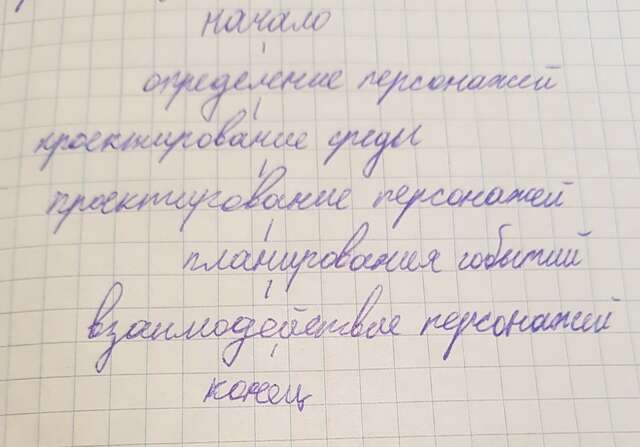 начало
определение персонажей
проектирование среды
проектирование персонажей
планирования событий
взаимодействие персонажей
конец